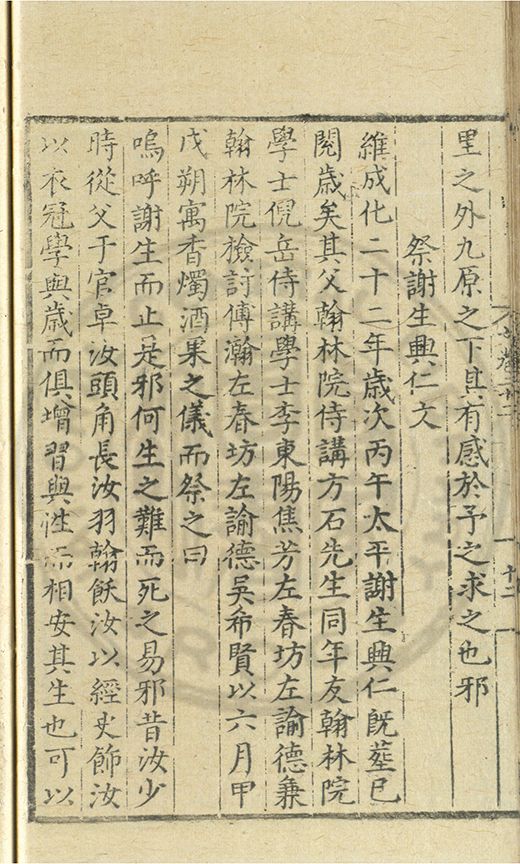 里之外九原之下其有感於予之求之也邪
祭謝生興仁文
維成化二十二年歲次丙午太平謝生興仁既塟已
閱歲矣其父翰林院侍講方石先生同年友翰林院
學士倪岳侍講學士李東陽焦芳左春坊左諭德兼
翰林院檢討傅瀚左春坊左諭德吳希賢以六月甲
戊朔寓香燭酒果之儀而祭之曰
嗚呼謝生而止是邪何生之難而死之易邪昔汝少
時從父于官卓汝頭角長汝羽翰飫汝以經史飾汝
以衣冠學與歲而俱增習與性而相安其生也可以
十二